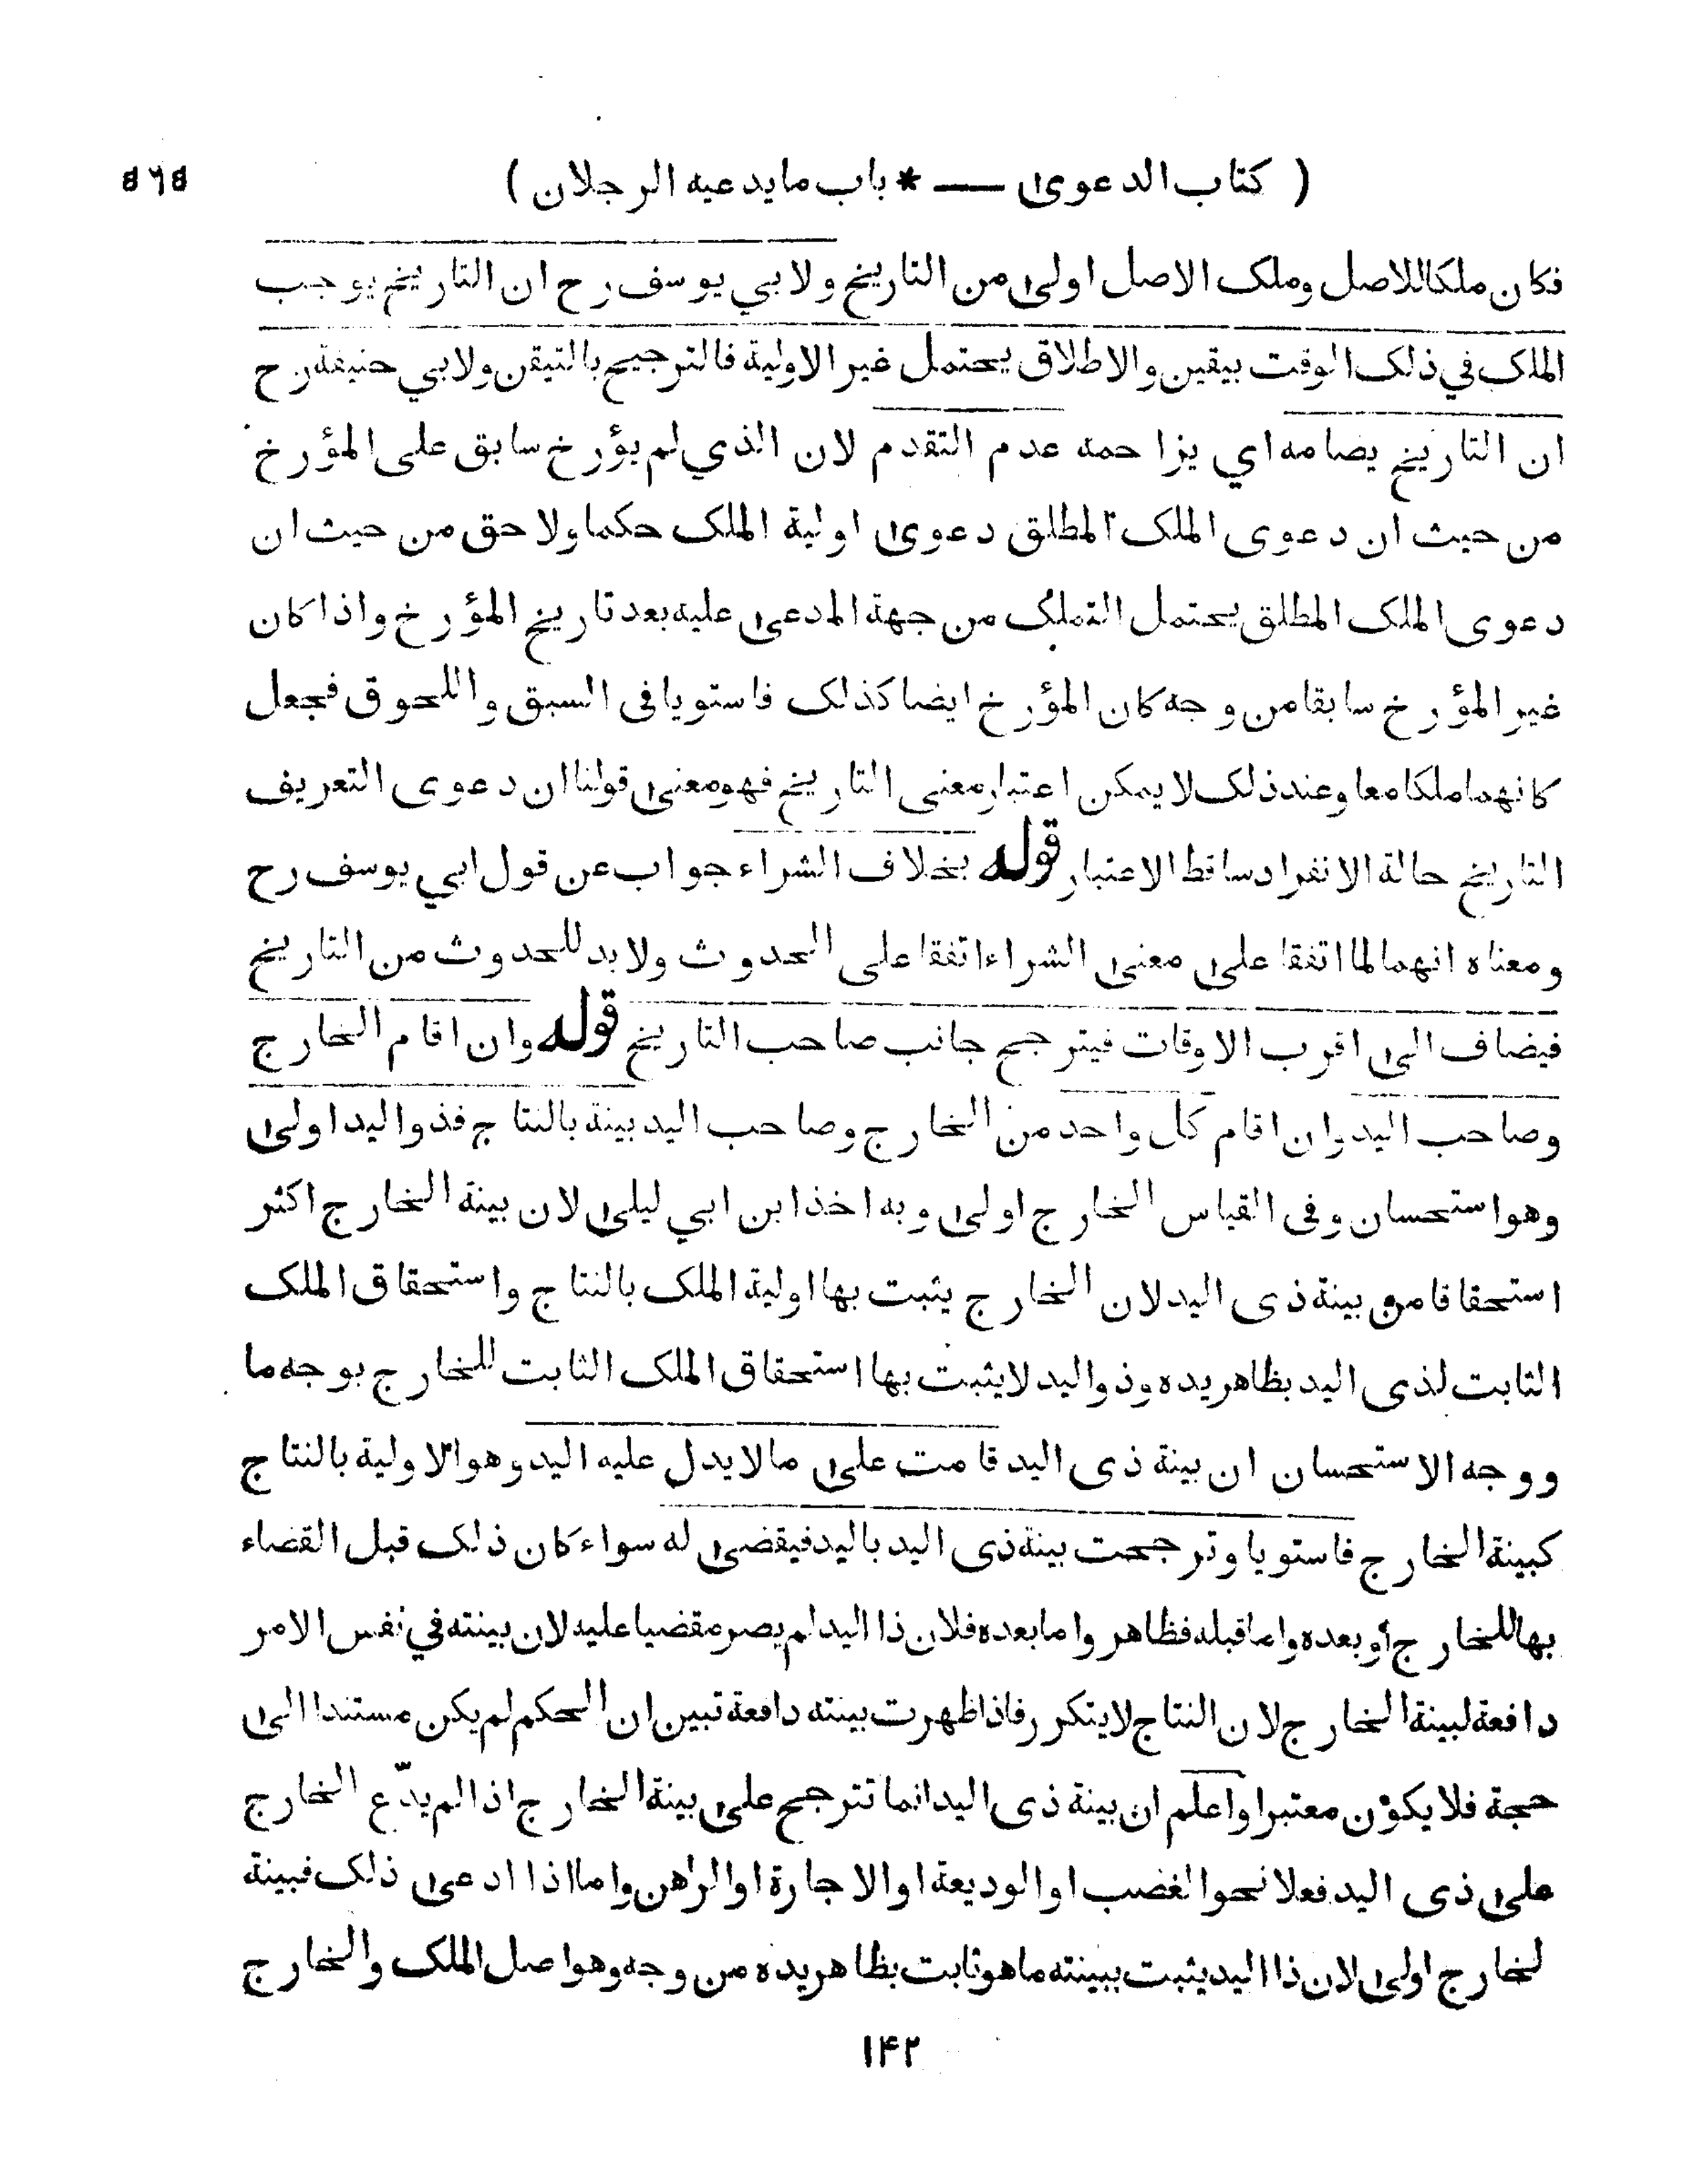 ( كتاب الدعوى — * باب ما يدعيه الرجلان )
فكان ملكا للاصل وملك الاصل اولى من التاريخ ولابي يوسف رح ان التاريخ يوجب
الملك في ذلك الوقت بيقين والاطلاق يحتمل غير الاولية فالترجيح بالتيقن ولابي حنيفة رح
ان التاريخ يضامه اي يزاحمه عدم التقدم لان الذي لم يؤرخ سابق على المؤرخ
من حيث ان دعوى الملك المطلق دعوى اولية الملك حكما ولاحق من حيث ان
دعوى الملك المطلق يحتمل التملك من جهة المدعى عليه بعد تاريخ المؤرخ واذا كان
غير المؤرخ سابقا من وجه كان المؤرخ ايضا كذلك فاستويا فى السبق واللحوق فجعل
كانهما ملكا معا وعند ذلك لا يمكن اعتبار معنى التاريخ فهو معنى قولنا ان دعوى التعريف
التاريخ حالة الانفراد ساقط الاعتبار قوله بخلاف الشراء جواب عن قول ابي يوسف رح
ومعناه انهما لما اتفقا على معنى الشراء اتفقا على الحدوث ولابد للحدوث من التاريخ
فيضاف الى اقرب الاوقات فيترجح جانب صاحب التاريخ قوله وان اقام الخارج
وصاحب اليد وان اقام كل واحد من الخارج وصاحب اليد بينة بالنتاج فذو اليد اولى
وهو استحسان وفى القياس الخارج اولى وبه اخذ ابن ابي ليلى لان بينة الخارج اكثر
استحقاقا من بينة ذى اليد لان الخارج يثبت بها اولية الملك بالنتاج واستحقاق الملك
الثابت لذى اليد بظاهر يده وذو اليد لا يثبت بها استحقاق الملك الثابت للخارج بوجه ما
ووجه الاستحسان ان بينة ذى اليد قامت على ما لا يدل عليه اليد وهو الاولية بالنتاج
كبينة الخارج فاستويا وترجحت بينة ذى اليد باليد فيقضى له سواء كان ذلك قبل القضاء
بها للخارج أو بعده واما قبله فظاهر واما بعده فلان ذا اليد لم يصر مقضيا عليه لان بينته في نفس الامر
دافعة لبينة الخارج لان النتاج لا يتكرر فاذا ظهرت بينته دافعة تبين ان الحكم لم يكن مستندا الى
حجة فلا يكون معتبرا واعلم ان بينة ذى اليد انما تترجح على بينة الخارج اذا لم يدّع الخارج
على ذى اليد فعلا نحو الغصب او الوديعة او الاجارة او الرهن واما اذا ادعى ذلك فبينة
لخارج اولى لان ذا اليد يثبت ببينته ما هو ثابت بظاهر يده من وجه وهو اصل الملك والخارج
۱۴۲